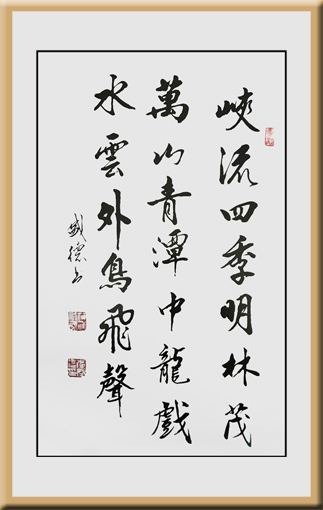 峽流四季明林茂
萬山青潭中龍戲
水雲外鳥飛聲
盛德书